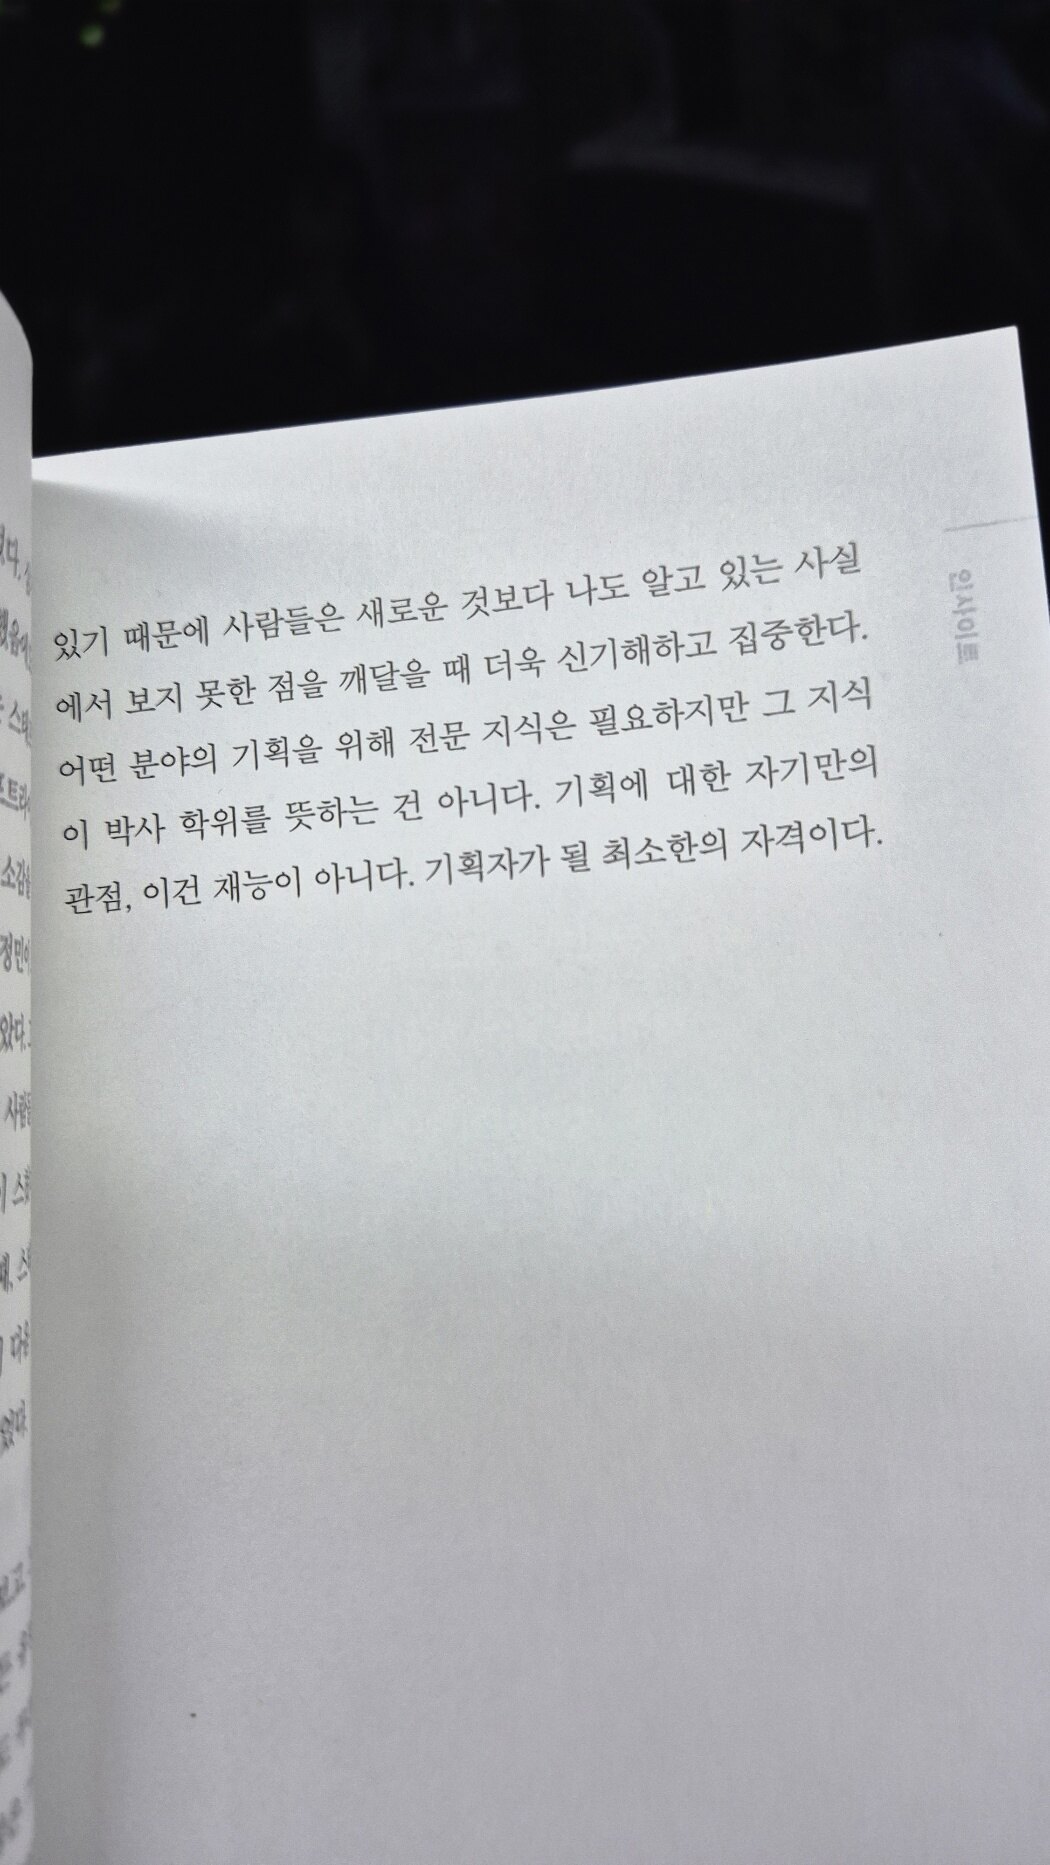 있기 때문에 사람들은 새로운 것보다 나도 알고 있는 사실
에서 보지 못한 점을 깨달을 때 더욱 신기해하고 집중한다.
어떤 분야의 기획을 위해 전문 지식은 필요하지만 그 지식
이 박사 학위를 뜻하는 건 아니다. 기획에 대한 자기만의
관점, 이건 재능이 아니다. 기획자가 될 최소한의 자격이다.
인사이트